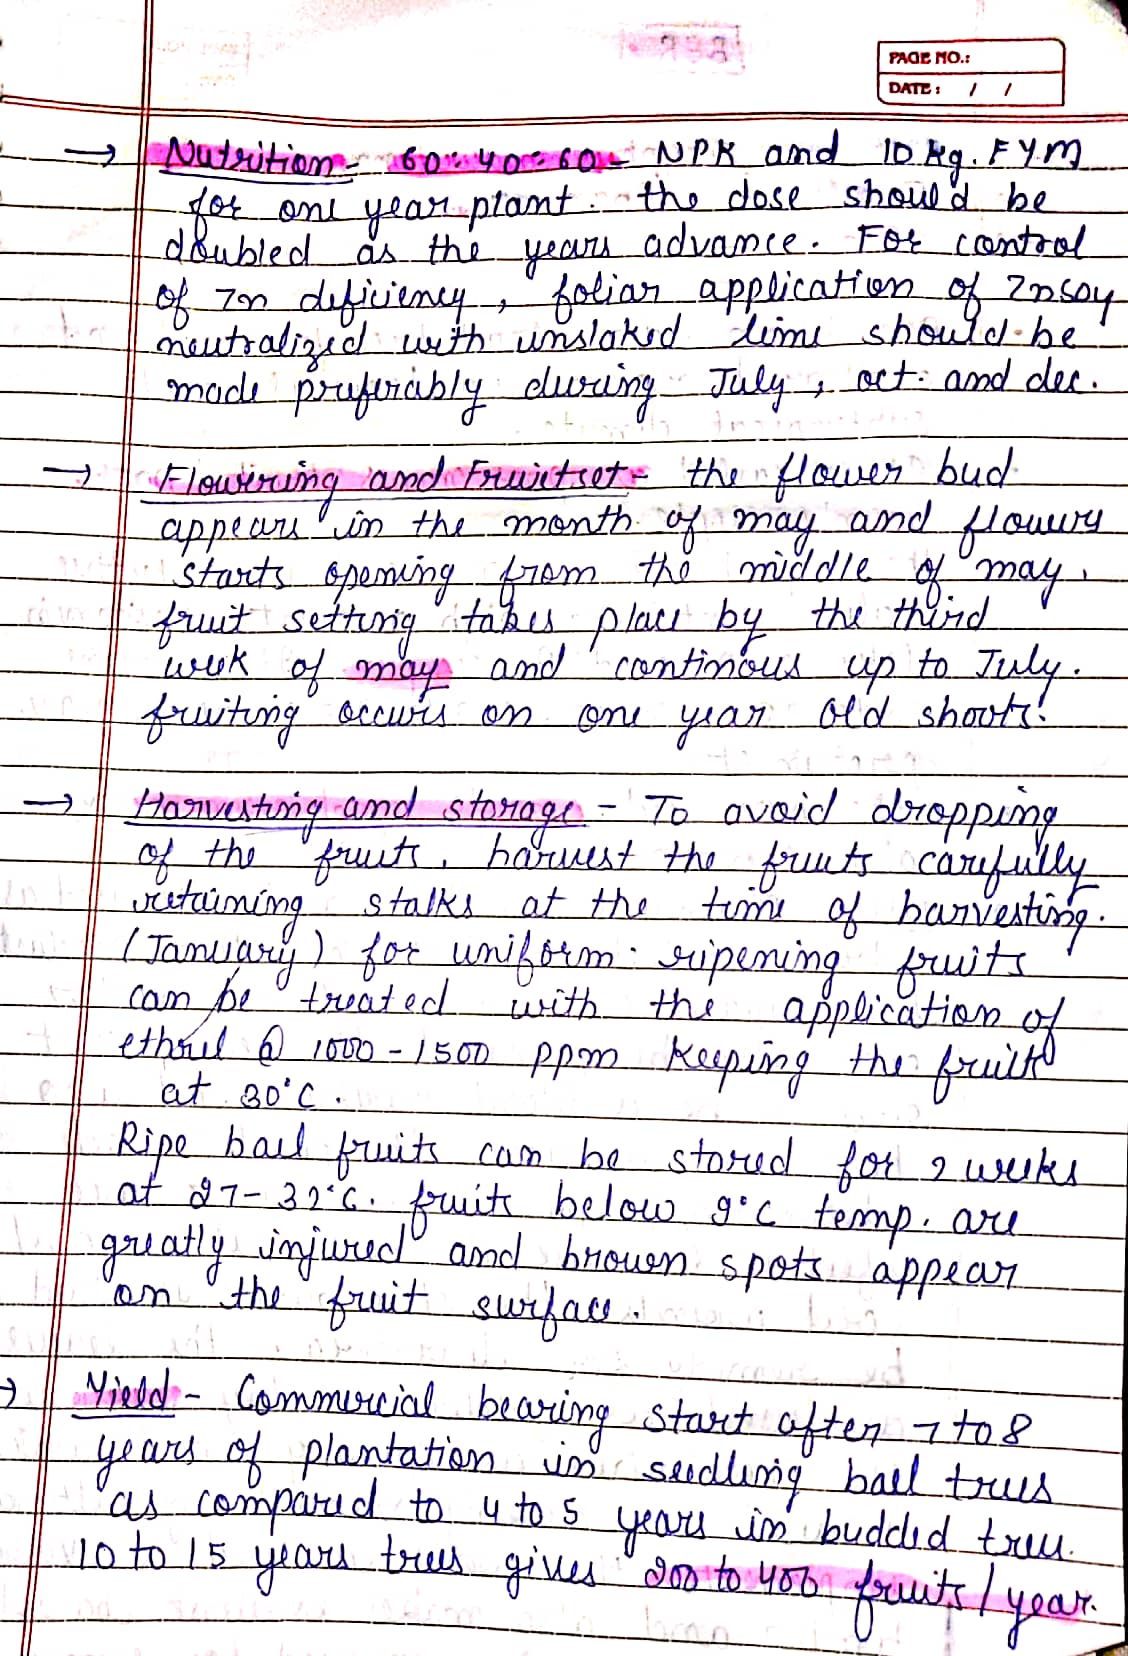 PAGE NO.:
DATE: / /
→ Nutrition - 60:40:60 - NPK and 10 kg. FYM
for one year plant. the dose should be
doubled as the years advance. For control
of Zn deficiency, foliar application of ZnSO4
neutralized with unslaked lime should be
made preferably during July, oct. and dec.
→ Flowering and Fruitset - the flower bud
appears in the month of may and flowers
starts opening from the middle of may.
fruit setting takes place by the third
week of may and continous up to July.
fruiting occurs on one year old shoots.
→ Harvesting and storage - To avoid dropping
of the fruits. harvest the fruits carefully
retaining stalks at the time of harvesting.
(January) for uniform ripening fruits
can be treated with the application of
ethrel @ 1000-1500 ppm keeping the fruits
at 30°C.
Ripe bael fruits can be stored for 2 weeks
at 27-32°C. fruits below 9°C temp. are
greatly injured and brown spots appear
on the fruit surface.
→ Yield - Commercial bearing start after 7 to 8
years of plantation in seedling bael trees
as compared to 4 to 5 years in budded tree.
10 to 15 years trees gives 200 to 400 fruits/year.